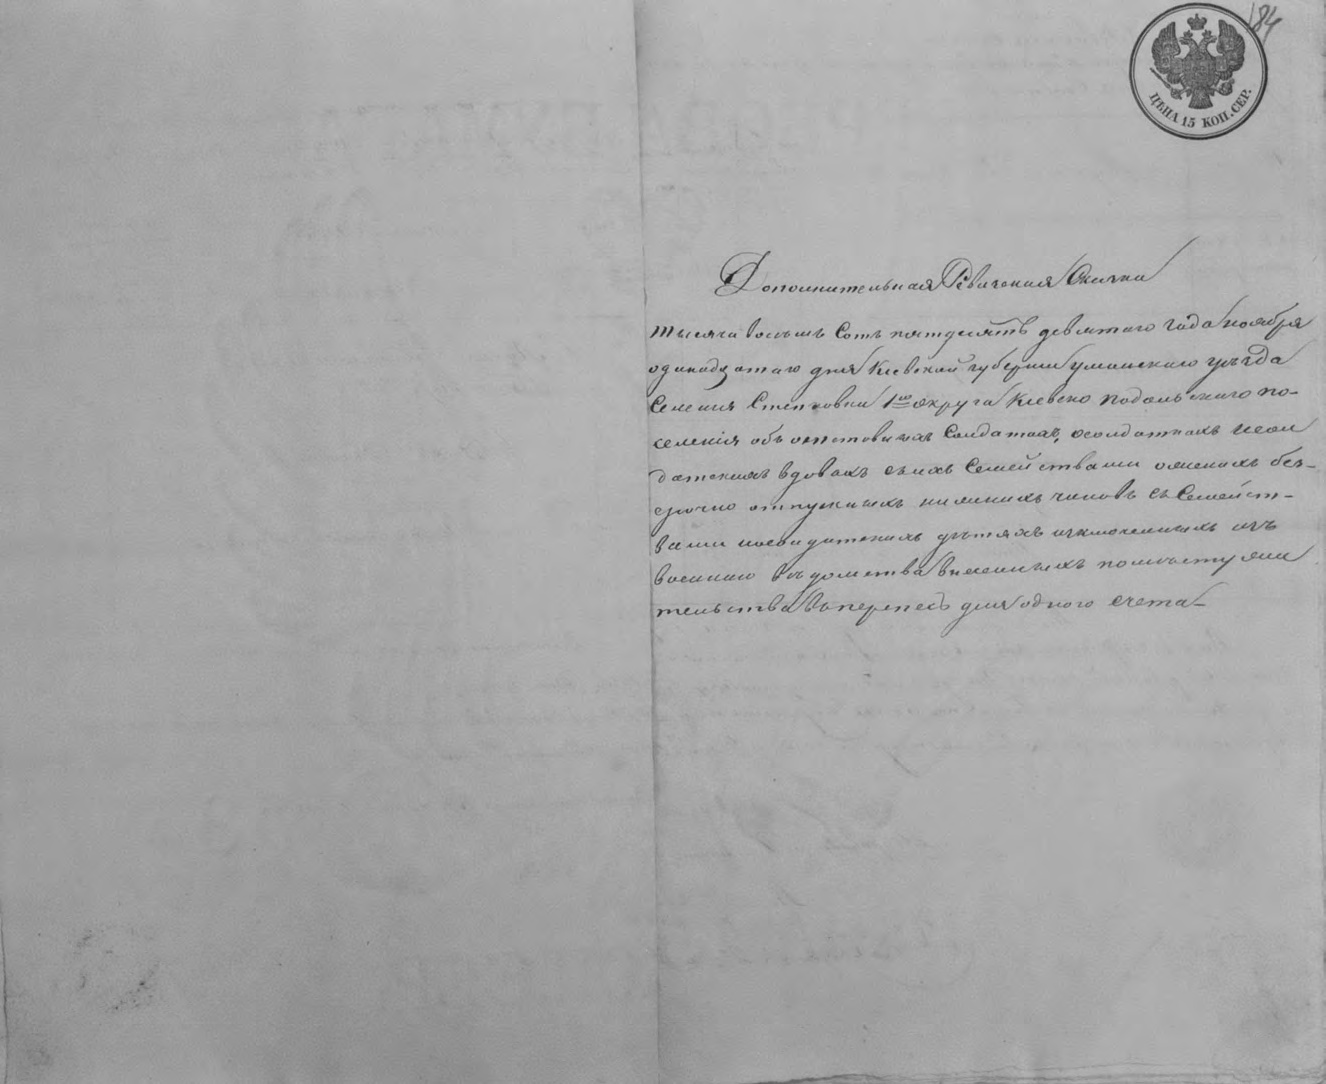 184
ЦѢНА 15 КОП. СЕР.
Дополнительная Ревизская Сказка
тысяча восемь Сотъ пятдесятъ девятаго года ноября
одинадцатаго дня Киевской губернии уманскаго уезда
Селения Степковки 1го округа Киевско Подольскаго по-
селенія объ отставныхъ Солдатахъ, осолдаткахъ исол
датскихъ вдовахъ сыхъ Семействами оженихъ без-
срочно отпускныхъ нижнихъ чиновъ съ Семейст-
вами исолдатскихъ дѣтяхъ изключенныхъ изъ
военнаго вѣдомства внесенныхъ помѣсту жи
тельства въ перепесь для одного счета